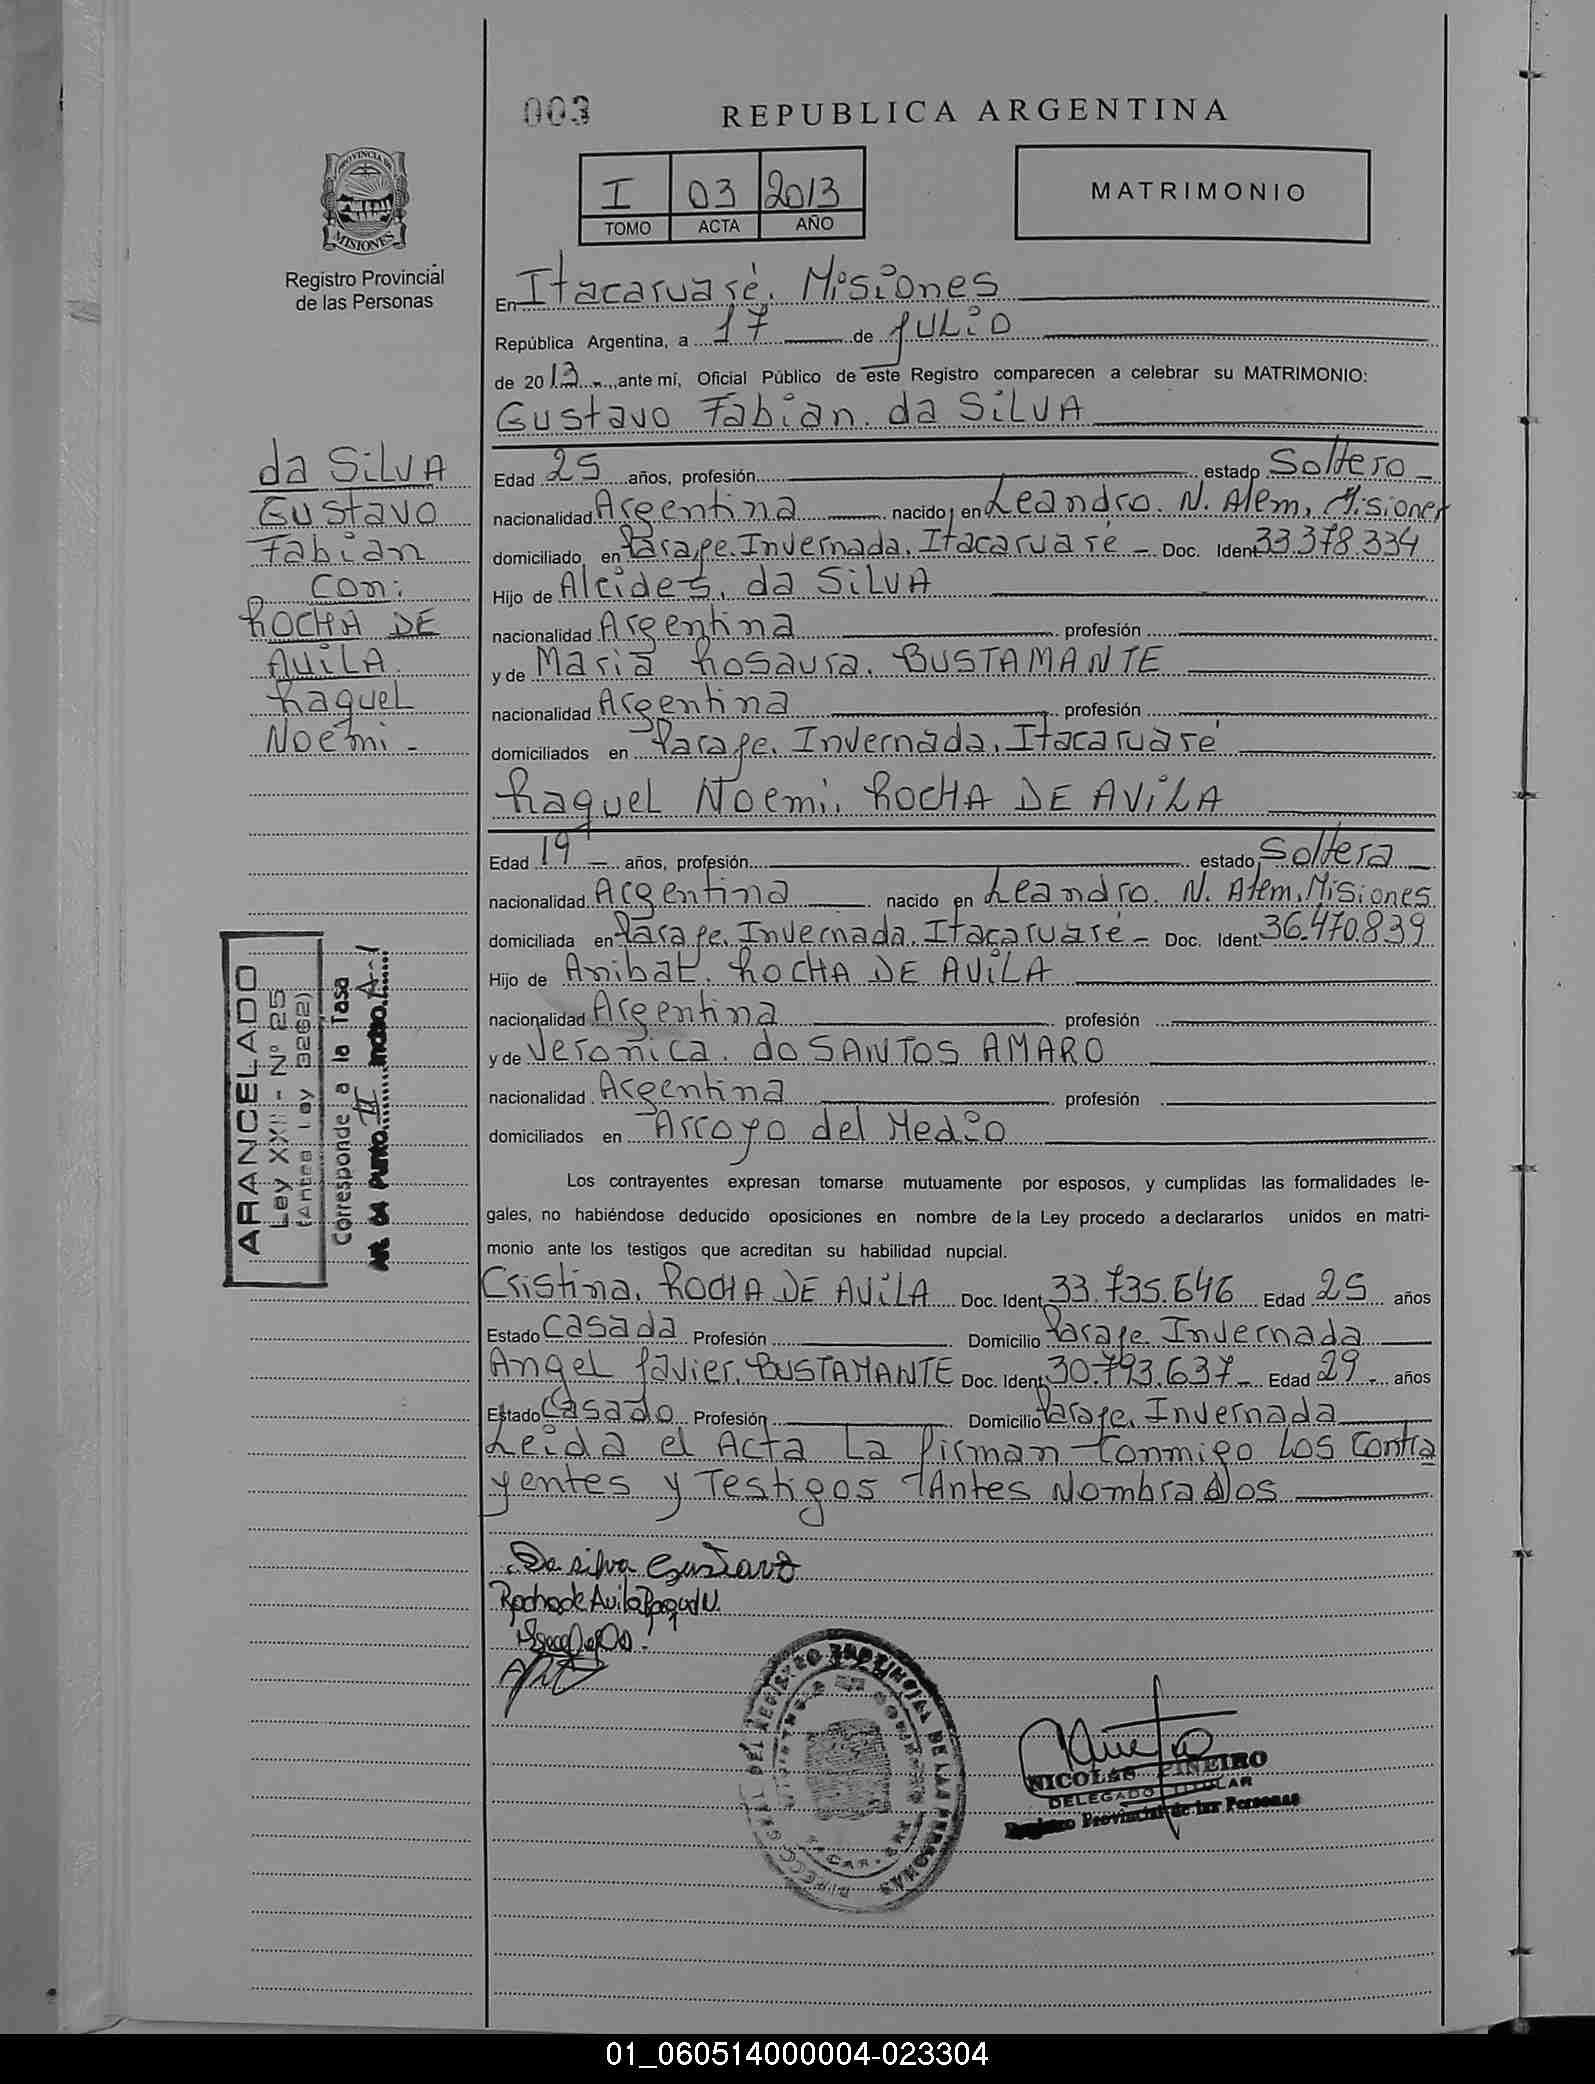 003
REPUBLICA ARGENTINA
I 03 2013
TOMO ACTA AÑO
MATRIMONIO
PROVINCIA DE
MISIONES
Registro Provincial
de las Personas
En Itacaruaré, Misiones
República Argentina, a 17 de Julio
de 2013 ante mí, Oficial Público de este Registro comparecen a celebrar su MATRIMONIO:
Gustavo Fabian. da SiLVA
da SiLVA
Gustavo
Fabian
con:
ROCHA DE
AViLA
Raquel
Noemi -
Edad 25 años, profesión estado Soltero -
nacionalidad Argentina nacido en Leandro. N. Alem, Misiones
domiciliado en Paraje. Invernada. Itacaruaré - Doc. Ident 33.378.334
Hijo de Alcides. da SiLVA
nacionalidad Argentina profesión
y de Maria Rosaura. BUSTAMANTE
nacionalidad Argentina profesión
domiciliados en Paraje. Invernada. Itacaruaré
Raquel Noemi. ROCHA DE AViLA
Edad 19 - años, profesión estado Soltera
nacionalidad Argentina nacido en Leandro. N. Alem, Misiones
domiciliada en Paraje. Invernada. Itacaruaré - Doc. Ident 36.470.839
Hijo de Anibal. ROCHA DE AViLA
nacionalidad Argentina profesión
y de Veronica. do SANTOS AMARO
nacionalidad Argentina profesión
domiciliados en Arroyo del Medio
ARANCELADO
Ley XXII - Nº 25
(Antes Ley 3262)
Corresponde a la Tasa
Art. 64 Punto II Inciso A-1
Los contrayentes expresan tomarse mutuamente por esposos, y cumplidas las formalidades le-
gales, no habiéndose deducido oposiciones en nombre de la Ley procedo a declararlos unidos en matri-
monio ante los testigos que acreditan su habilidad nupcial.
Cristina. ROCHA DE AViLA Doc. Ident 33.735.646 Edad 25 años
Estado Casada Profesión Domicilio Paraje. Invernada
Angel Javier. BUSTAMANTE Doc. Ident 30.793.637 - Edad 29 - años
Estado Casado Profesión Domicilio Paraje. Invernada
Leida el Acta La firman Conmigo Los Contra
yentes y Testigos Antes Nombrados
Da silva Gustavo
Rocha de Avila Raquel N.
NICOLÁS PIÑEIRO
DELEGADO TITULAR
Registro Provincial de las Personas
01_060514000004-023304